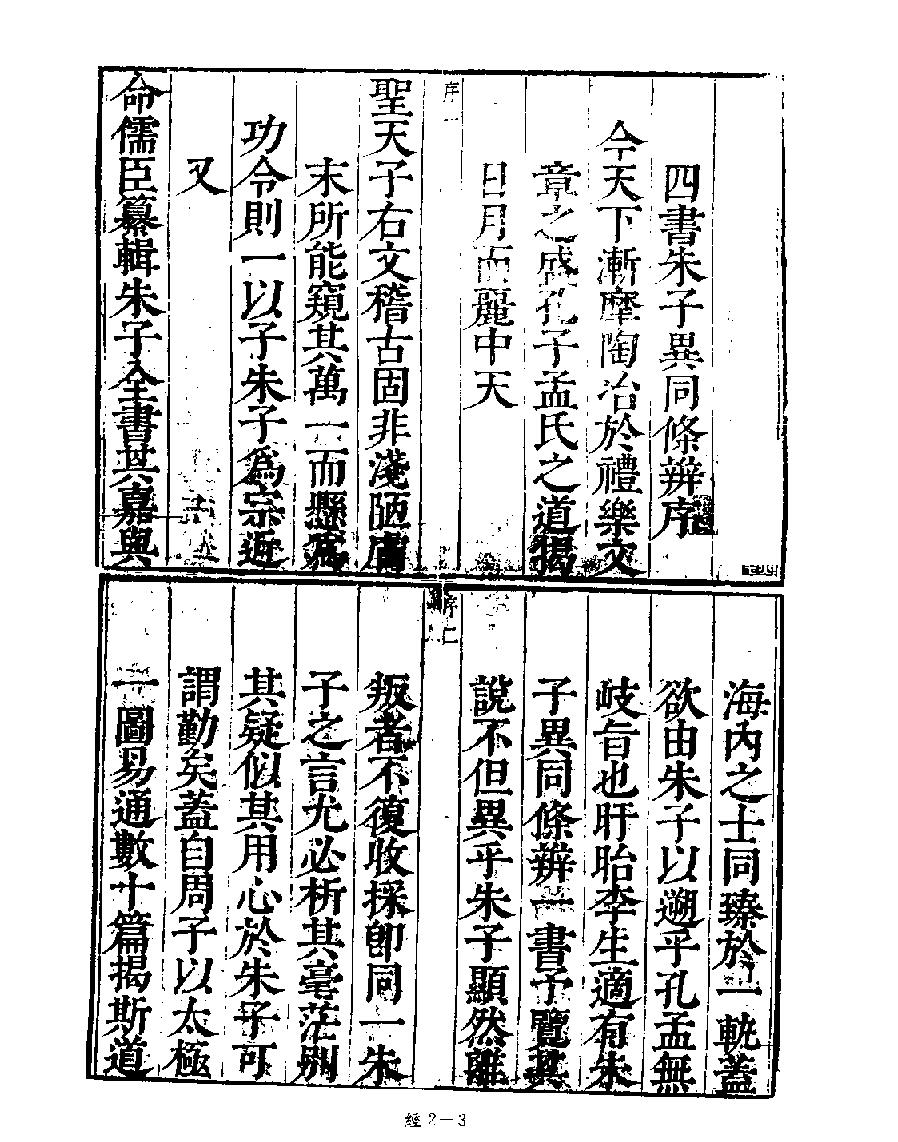 四書朱子異同條辨序
今天下漸摩陶冶於禮樂文
章之盛孔子孟氏之道揭
日月而麗中天
序一
聖天子右文稽古固非淺陋膚
末所能窺其萬一而懸爲
功令則一以子朱子爲宗近
又
命儒臣纂輯朱子全書其嘉與
海內之士同臻於一軌蓋
欲由朱子以遡乎孔孟無
岐旨也盱眙李生適有朱
子異同條辨一書予覽其
說不但異乎朱子顯然離
序二
叛者不復收採卽同一朱
子之言尤必析其毫茫別
其疑似其用心於朱子可
謂勤矣蓋自周子以太極
一圖易通數十篇揭斯道
經2—3